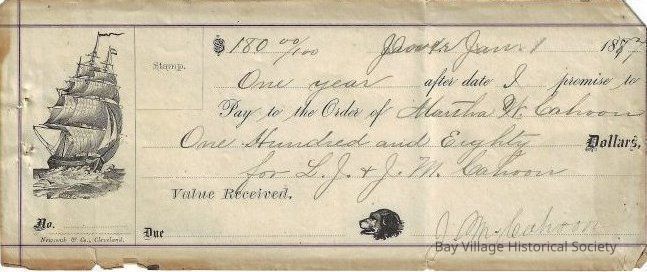 $ 180 00/100 Jan. 1 1887
Stamp.
One year after date I promise to
Pay to the Order of Martha W. Cahoon
One Hundred and Eighty Dollars.
for L. J. & J. M. Cahoon
Value Received.
No.
Due
J. M. Cahoon
Newcomb & Co., Cleveland.
Bay Village Historical Society